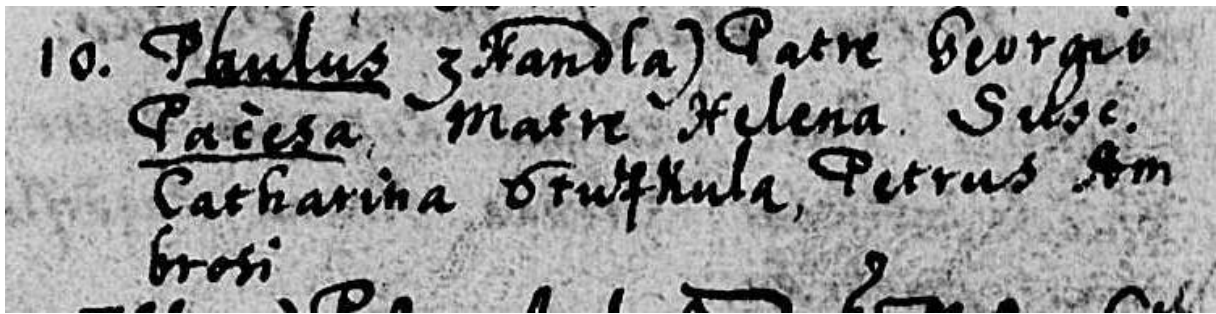 10. Paulus z Handla) Patre Georgio
Pačesa, Matre Helena. Susc.
Catharina, Petrus Am
brosi